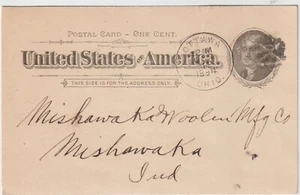 POSTAL CARD – ONE CENT.
United States of America.
THIS SIDE IS FOR THE ADDRESS ONLY.
OTTAWA
1894
OHIO.
Mishawaka Woolen Mfg Co
Mishawaka
Ind